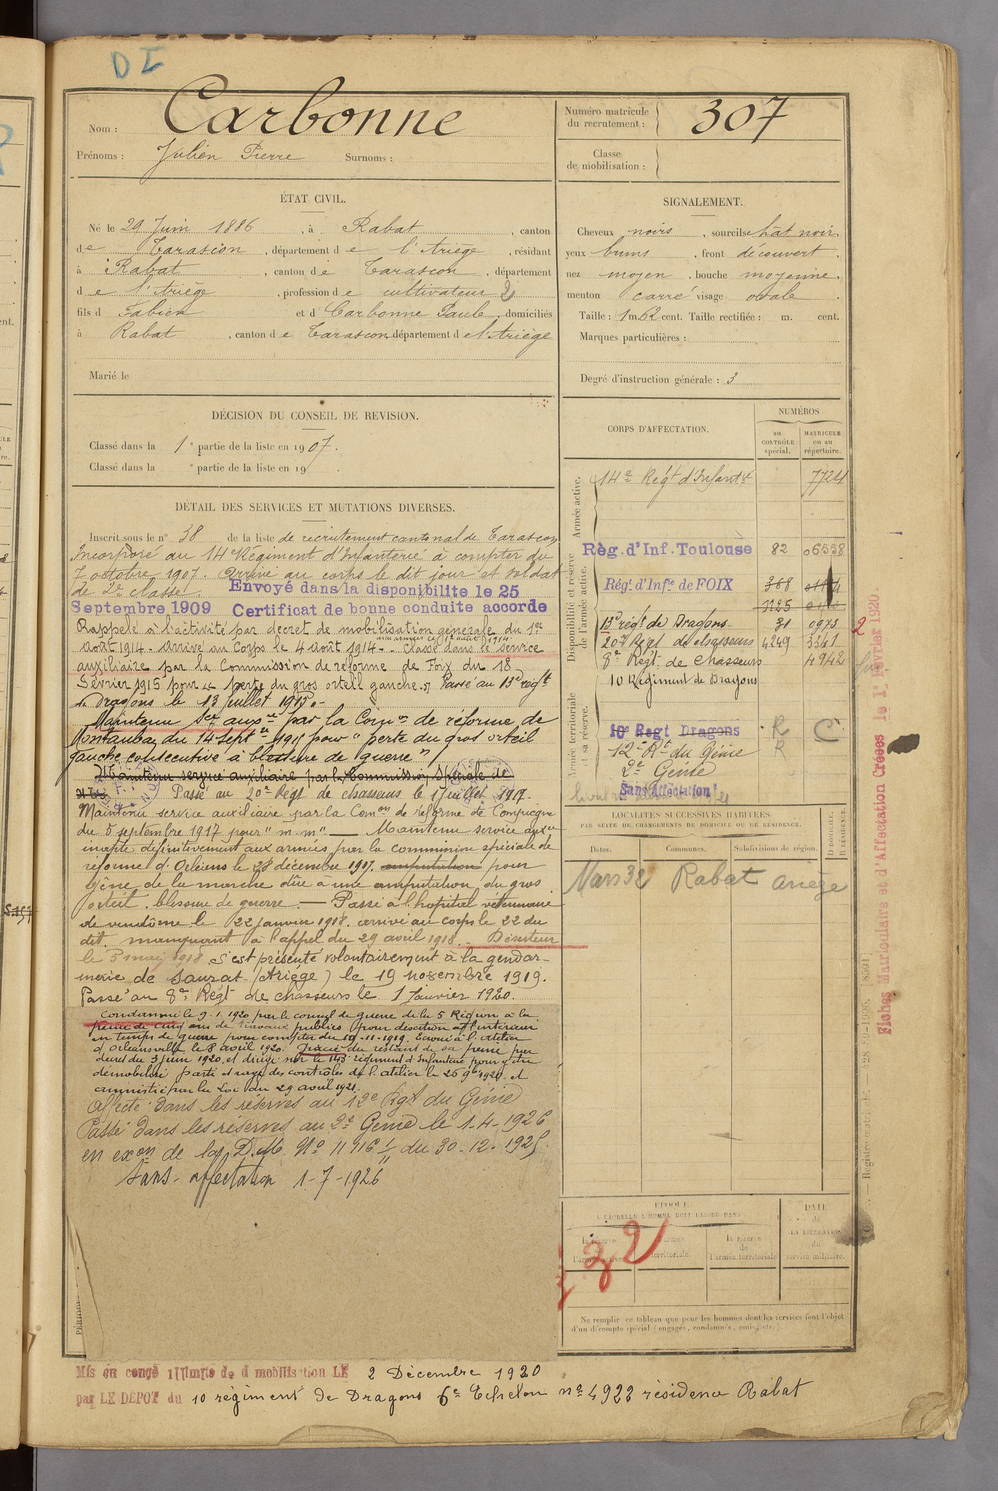 DI
Nom : Carbonne
Prénoms : Julien Pierre Surnoms :
Numéro matricule du recrutement : 307
Classe de mobilisation :
ÉTAT CIVIL.
Né le 29 Juin 1886, à Rabat, canton
de Tarascon, département de l'Ariège, résidant
à Rabat, canton de Tarascon, département
de l'Ariège, profession de cultivateur 2
fils d Fabien et d Carbonne Paule, domiciliés
à Rabat, canton de Tarascon, département de l'Ariège
Marié le
SIGNALEMENT.
Cheveux noirs, sourcils chât noir,
yeux bruns, front découvert,
nez moyen, bouche moyenne,
menton carré visage ovale
Taille : 1 m. 62 cent. Taille rectifiée : m. cent.
Marques particulières :
Degré d'instruction générale : 3
DÉCISION DU CONSEIL DE REVISION.
Classé dans la 1e partie de la liste en 1907.
Classé dans la e partie de la liste en 19
DÉTAIL DES SERVICES ET MUTATIONS DIVERSES.
Inscrit sous le n° 38 de la liste de recrutement cantonal de Tarascon
Incorporé au 14e Régiment d'Infanterie à compter du
7 octobre 1907. Arrivé au corps le dit jour et soldat
de 2e classe. Envoyé dans la disponibilite le 25
Septembre 1909 Certificat de bonne conduite accorde
Rappelé à l'activité par décret de mobilisation générale du 1er
août 1914. Arrivé au Corps le 4 août 1914. Classé dans le service
auxiliaire par la Commission de réforme de Foix du 18
Février 1915 pour perte du gros orteil gauche. Passé au 15e régt
de Dragons le 13 juillet 1915.
Maintenu Sce auxre par la Comon de réforme de
Montauban du 14 Septre 1915 pour "perte du gros orteil
gauche consécutive à blessure de guerre"
Maintenu service auxiliaire par la Commission Spéciale de
Passé au 20e Régt de chasseurs le 1 juillet 1917.
Maintenu service auxiliaire par la Comon de réforme de Compiègne
du 5 septembre 1917 pour "m. m" — Maintenu service auxre
inapte définitivement aux armées par la commission spéciale de
réforme d'Orléans le 28 décembre 1917. amputation pour
gêne de la marche dûe à une amputation du gros
orteil, blessure de guerre. — Passé à l'hopital vétérinaire
de vendôme le 22 janvier 1918. arrivé au corps le 22 du
dit. manquant à l'appel du 29 avril 1918. Déserteur
le 3 mai 1918 S'est présenté volontairement à la gendar-
merie de Saurat (Ariège) le 19 novembre 1919.
Passé au 8e Régt de chasseurs le 1 Janvier 1920.
Condamné le 9.1.1920 par le conseil de guerre de la 5 Région à la
peine de cinq ans de Travaux publics pour désertion à l'intérieur
en temps de guerre pour compter du 19-11-1919. Ecroué à l'atelier
d'Orléansville le 8 avril 1920. Gracié du restant de sa peine par
décret du 3 juin 1920 et dirigé sur le 143 régiment d'Infanterie pour y être
démobilisé parti et rayé des contrôles de l'atelier le 26 9bre 1920 et
amnistié par la Loi du 29 avril 1921.
Affecté dans les réserves au 12e Rgt du Génie
Passé dans les réserves au 2e Génie le 1.4.1926
en exon de la D.M. No 11716 1/11 du 30-12-1925.
Sans affectation 1-7-1926
CORPS D'AFFECTATION.
NUMÉROS
AU CONTRÔLE spécial.
MATRICULE ou au répertoire.
Armée active.
14e Régt d'Infantie 7724
Disponibilité et réserve de l'armée active.
Règ. d'Inf. Toulouse 82 06538
Régt d'Infie de FOIX 368
1125
15e régt de Dragons 31 0973
20e Régt de chasseurs 4249 3341
8e Régt de chasseurs 4942
10 Régiment de Dragons
Armée territoriale et sa réserve.
10e Regt Dragons R C
12e Rt du Génie R
2e Génie
Sans Affectation
LOCALITÉS SUCCESSIVES HABITÉES
PAR SUITE DE CHANGEMENTS DE DOMICILE OU DE RÉSIDENCE.
Dates. Communes. Subdivisions de région. D DOMICILE. R RÉSIDENCE
Mars 32 Rabat Ariège
ÉPOQUE
À LAQUELLE L'HOMME DOIT PASSER DANS
l'armée territoriale.
la réserve de l'armée territoriale
DATE de LA LIBÉRATION du service militaire.
Ne remplir ce tableau que pour les hommes dont les services font l'objet
d'un décompte spécial (engagés, condamnés, omis, etc.).
Fiches Matriculaires et d'Affectation Créées le 1er Février 1920.
Mis en congé illimité de démobilisation LE 2 Décembre 1920
par LE DEPOT du 10 régiment de Dragons 6e Echelon no 4922 résidence Rabat